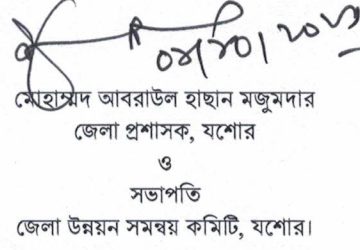 মোহাম্মদ আবরাউল হাছান মজুমদার
জেলা প্রশাসক, যশোর
ও
সভাপতি
জেলা উন্নয়ন সমন্বয় কমিটি, যশোর।